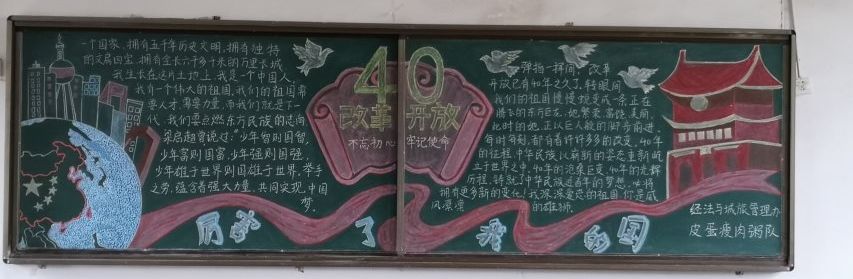 一个国家、拥有五千年历史文明,拥有独特
的文房四宝、拥有全长六千多千米的万里长城
我生长在这片土地上,我是一个中国人,
我有一个伟大的祖国,我们的祖国需
要人才,需要力量,而我们就是下一
代,我们要点燃东方民族的志向
梁启超曾说过:“少年智则国智,
少年富则国富,少年强则国强,
少年雄于世界则国雄于世界,举手
之劳,蕴含着强大力量,共同实现中国
梦。
40
改革开放
不忘初心 牢记使命
弹指一挥间,改革
开放已有40年之久了,转眼间
我们的祖国慢慢蜕变成一条正在
腾飞的东方巨龙,她繁荣、富饶、美丽,
此时的她,正以巨人般的脚步前进,
每时每刻,都有着许许多多的改变,40年
的征程,中华民族以崭新的姿态重新屹
立于世界之中,40年的沧桑巨变,40年的光辉
历程,铸就了中华民族近百年的梦想,
拥有更多新的变化!我深深爱恋的祖国你是威
风凛凛的雄狮。
厉害了我的国
经法与城旅管理办
皮蛋瘦肉粥队